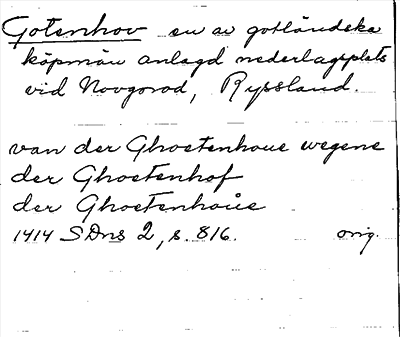 Gotenhov en av gotländska
köpmän anlagd nederlagsplats
vid Novgorod, Ryssland.
van der Ghostenhoue wegene
der Ghoetenhof
der Ghoetenhoůe
1414 SDns 2, s. 816. orig.